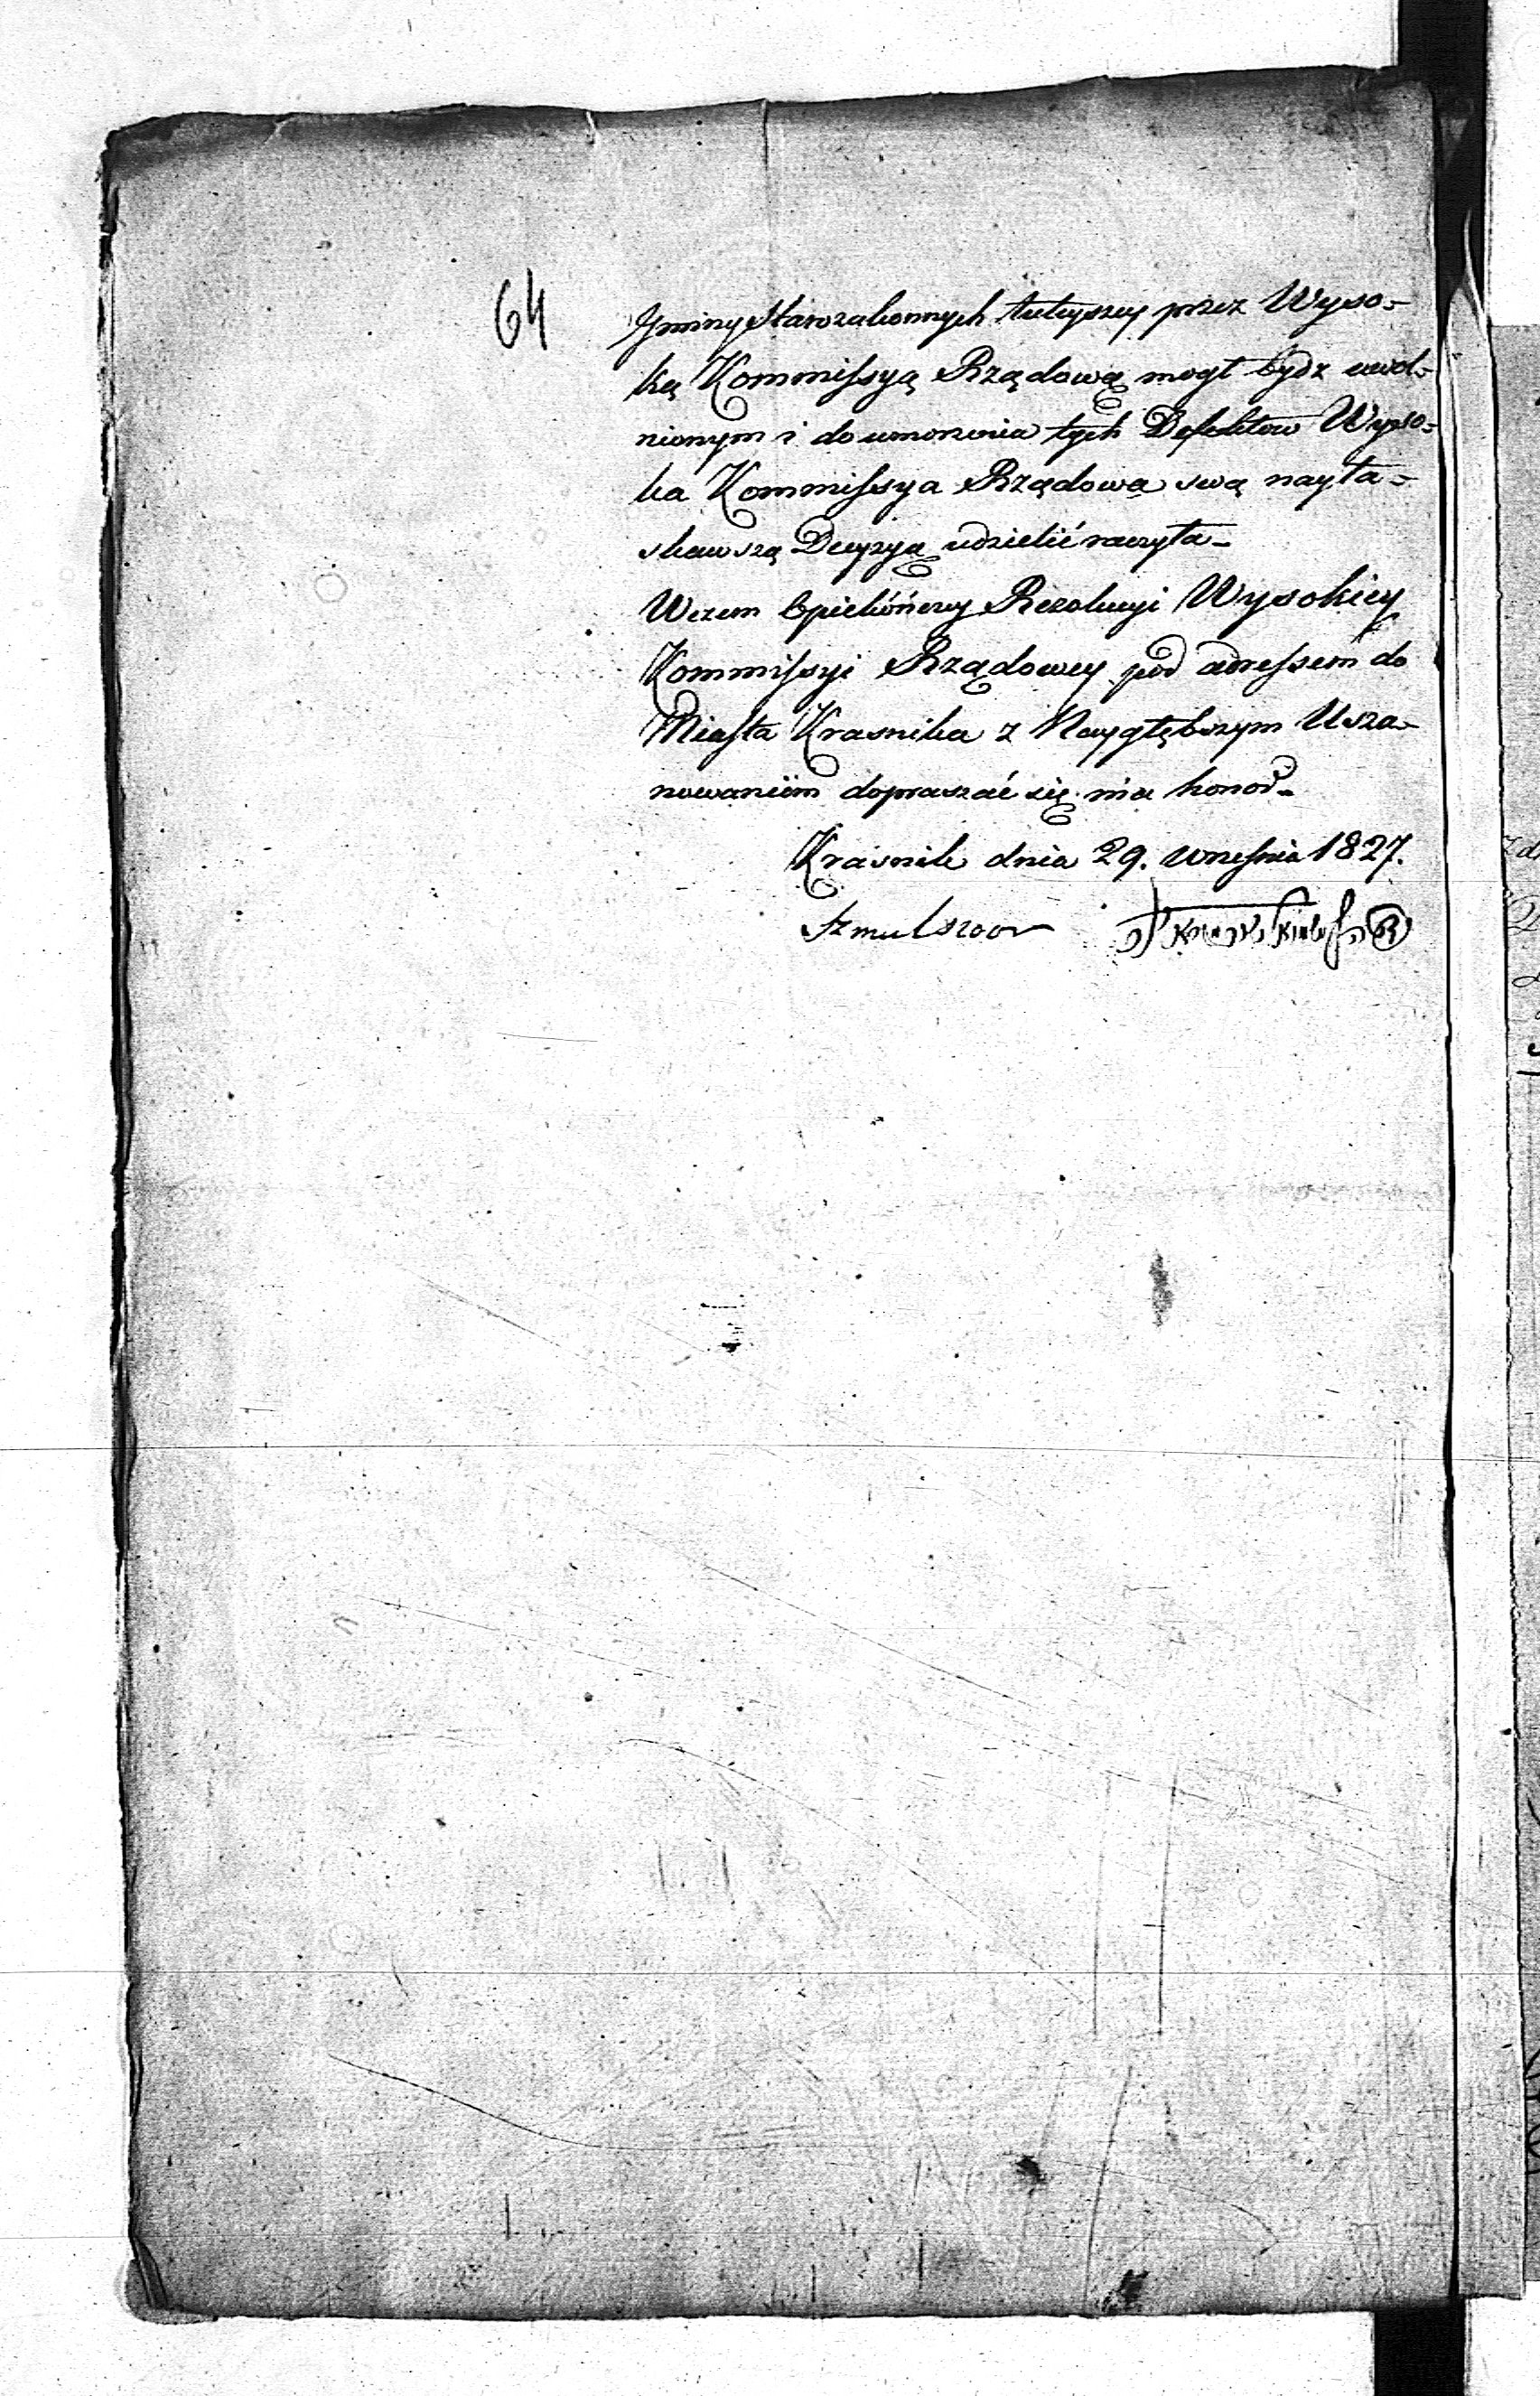 64
Gminy Starozakonnych tuteyszey przez Wyso-
ką Kommissyą Rządową mogł bydz uwol-
nionym i do umorzenia tych Defektow Wyso-
ka Kommissya Rządowa swą nayła-
skawszą Decyzyą udzielić raczyła-
Wczem Opiekónczey Rezolucyi Wysokiey
Kommissyi Rządowey pod adressem do
Miasta Krasnika z Naygłębszym Usza-
nowaniem dopraszać się ma honor-
Krasnik dnia 29. Września 1827.
Szmul